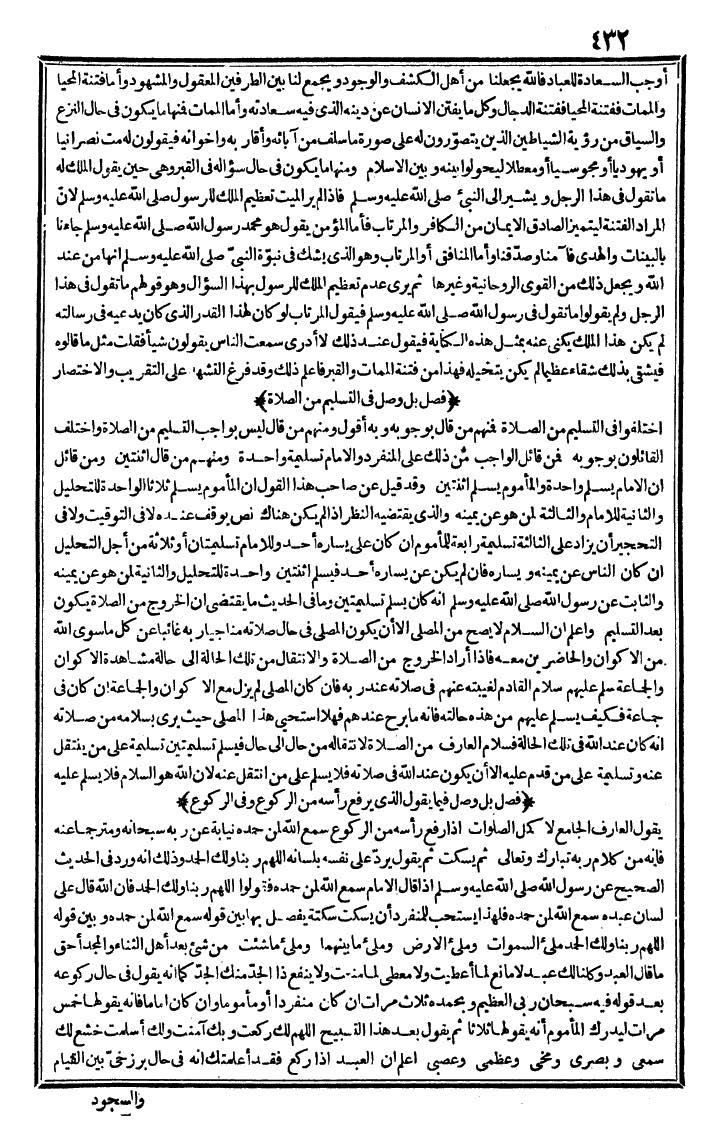 ٤٣٢
أوجب السعادة للعباد فالله يجعلنا من أهل الكشف والوجود ويجمع لنا بين الطرفين المعقول والمشهود وأما فتنة المحيا
والممات ففتنة المحيا ففتنة الدجال وكل ما يفتن الانسان عن دينه الذى فيه سعادته وأما الممات فنها ما يكون فى حال النزع
والسياق من رؤية الشياطين الذين يتصوّرون له على صورة ما سلف من آبائه وأقاربه واخوانه فيقولون له مت نصرانيا
أو يهوديا أو مجوسيا أو معطلا ليحولوا بينه وبين الاسلام ومنها ما يكون فى حال سؤاله فى القبر وهى حين يقول الملك له
ما تقول فى هذا الرجل ويشير الى النبىّ صلى الله عليه وسلم فاذا لم ير الميت تعظيم الملك للرسول صلى الله عليه وسلم لانّ
المراد الفتنة ليتميز الصادق الايمان من الكافر والمرتاب فأما المؤمن يقول هو محمد رسول الله صلى الله عليه وسلم جاءنا
بالبينات والهدى فآمنا وصدّقنا وأما المنافق أو المرتاب وهو الذى يشك فى نبوّة النبىّ صلى الله عليه وسلم انها من عند
الله ويجعل ذلك من القوى الروحانية وغيرها ثم يرى عدم تعظيم الملك للرسول بهذا السؤال وهو قولهم ما تقول فى هذا
الرجل ولم يقولوا ما تقول فى رسول الله صلى الله عليه وسلم فيقول المرتاب لو كان لهذا القدر الذى كان يدعيه فى رسالته
لم يكن هذا الملك يكنى عنه بمثل هذه الكناية فيقول عند ذلك لا أدرى سمعت الناس يقولون شيأ فقلت مثل ما قالوه
فيشقى بذلك شقاء عظيما لم يكن يتخيله فهذا من فتنة الممات والقبر فاعلم ذلك وقد فرغ التشهد على التقريب والاختصار
﴿فصل بل وصل فى التسليم من الصلاة﴾
اختلفوا فى التسليم من الصلاة فنهم من قال بوجوبه وبه أقول ومنهم من قال ليس بواجب التسليم من الصلاة واختلف
القائلون بوجوبه فن قائل الواجب من ذلك على المنفرد والامام تسليمة واحدة ومنهم من قال اثنتين ومن قائل
ان الامام يسلم واحدة والمأموم يسلم اثنتين وقد قيل عن صاحب هذا القول ان المأموم يسلم ثلاثا الواحدة للتحليل
والثانية للامام والثالثة لمن هو عن يمينه والذى يقتضيه النظر اذ لم يكن هناك نص يوقف عنده لا فى التوقيت ولا فى
التحجير أن يزاد على الثالثة تسليمة رابعة للمأموم ان كان على يساره أحد وللامام تسليمتان أو ثلاثة من أجل التحليل
ان كان الناس عن يمينه ويساره فان لم يكن عن يساره أحد فيسلم اثنتين واحدة للتحليل والثانية لمن هو عن يمينه
والثابت عن رسول الله صلى الله عليه وسلم انه كان يسلم تسليمتين وما فى الحديث ما يقتضى ان الخروج من الصلاة يكون
بعد التسليم واعلم ان السلام لا يصح من المصلى الا أن يكون المصلى فى حال صلاته مناجيا ربه غائبا عن كل ما سوى الله
من الاكوان والحاضرين معه فاذا أراد الخروج من الصلاة والانتقال من تلك الحالة الى حالة مشاهدة الاكوان
والجماعة سلم عليهم سلام القادم لغيبته عنهم فى صلاته عند ربه فان كان المصلى لم يزل مع الاكوان والجماعة ان كان فى
جماعة فكيف يسلم عليهم من هذه حالته فانه ما برح عندهم فهلا استحيى هذا المصلى حيث يرى بسلامه من صلاته
انه كان عند الله فى تلك الحالة فسلام العارف من الصلاة لانتقاله من حال الى حال فيسلم تسليمتين تسليمة على من ينتقل
عنه وتسليمة على من قدم عليه الا أن يكون عند الله فى صلاته فلا يسلم على من انتقل عنه لان الله هو السلام فلا يسلم عليه
﴿فصل بل وصل فيما يقول الذى يرفع رأسه من الركوع وفى الركوع﴾
يقول العارف الجامع لا كمل الصلوات اذا رفع رأسه من الركوع سمع الله لمن حمده نيابة عن ربه سبحانه ومترجما عنه
فانه من كلام ربه تبارك وتعالى ثم يسكت ثم يقول يردّ على نفسه بلسانه اللهم ربنا ولك الحمد وذلك انه ورد فى الحديث
الصحيح عن رسول الله صلى الله عليه وسلم اذا قال الامام سمع الله لمن حمده فقولوا اللهم ربنا ولك الحمد فان الله قال على
لسان عبده سمع الله لمن حمده فلهذا يستحب للمنفرد أن يسكت سكتة يفصل بها بين قوله سمع الله لمن حمده وبين قوله
اللهم ربنا ولك الحمد ملئ السموات وملئ الارض وملئ ما بينهما وملئ ما شئت من شئ بعد أهل الثناء والمجد أحق
ما قال العبد وكلنا لك عبد لا مانع لما أعطيت ولا معطى لما منعت ولا ينفع ذا الجدّ منك الجدّ كما انه يقول فى حال ركوعه
بعد قوله فيه سبحان ربى العظيم وبحمده ثلاث مرات ان كان منفردا أو مأموما وان كان اماما فانه يقولها خمس
مرات ليدرك المأموم أنه يقولها ثلاثا ثم يقول بعد هذا التسبيح اللهم لك ركعت وبك آمنت ولك أسلمت خشع لك
سمعى وبصرى ومخى وعظمى وعصبى اعلم ان العبد اذا ركع فقد أعلمتك انه فى حال برزخىّ بين القيام
والسجود